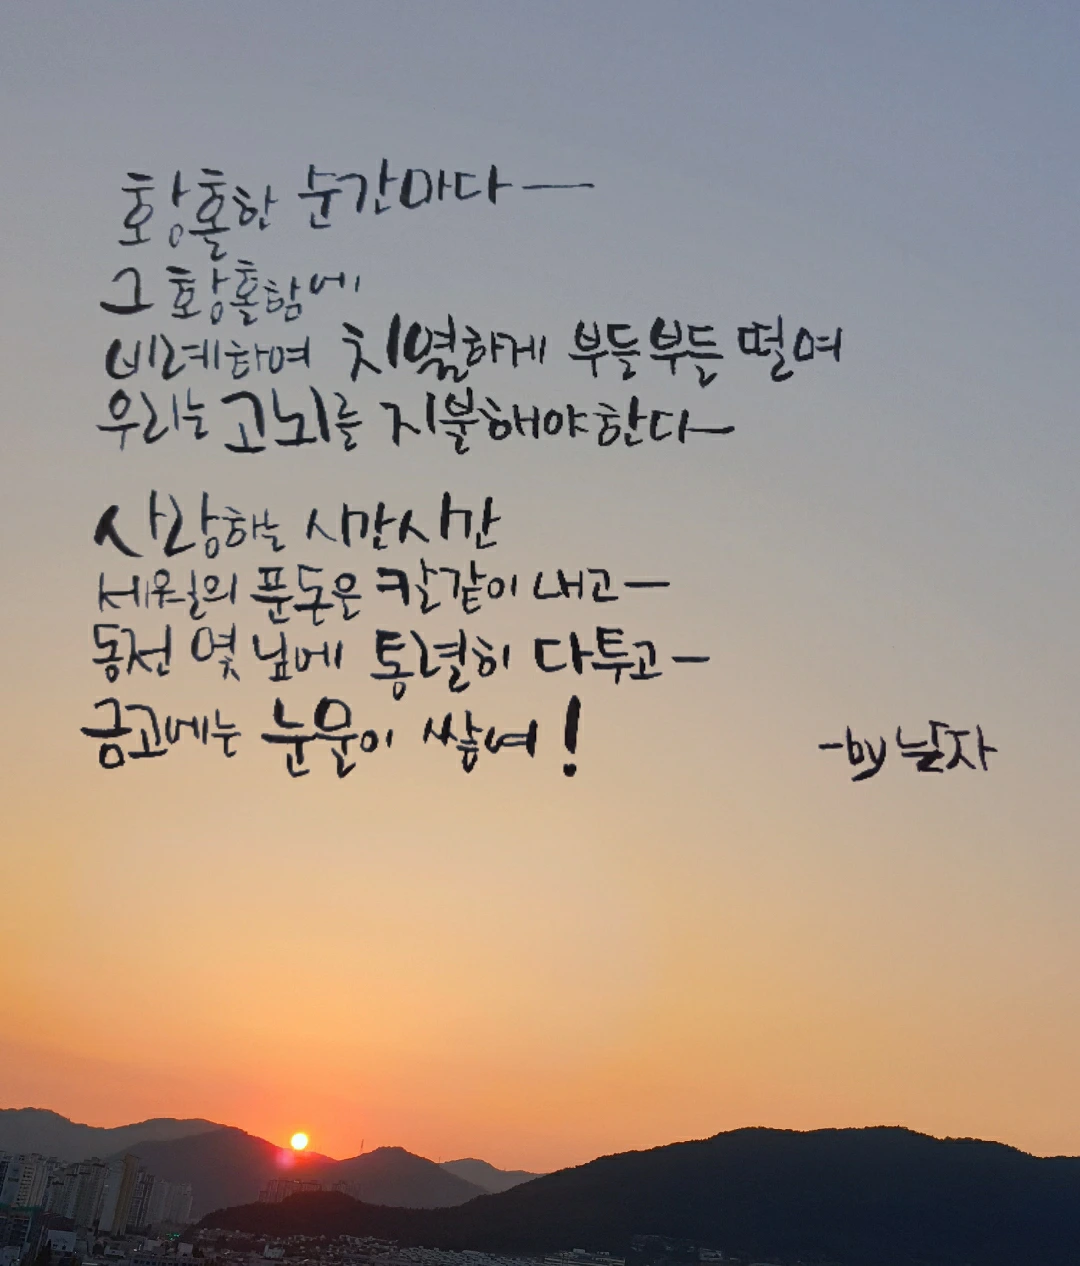 황홀한 순간마다 —
그 황홀함에
비례하여 치열하게 부들부들 떨며
우리는 고뇌를 지불해야한다
사랑하는 시간시간
세월의 푼돈은 칼같이 내고 —
동전 몇 닢에 통렬히 다투고 —
금고에는 눈물이 쌓여!
-by 날자